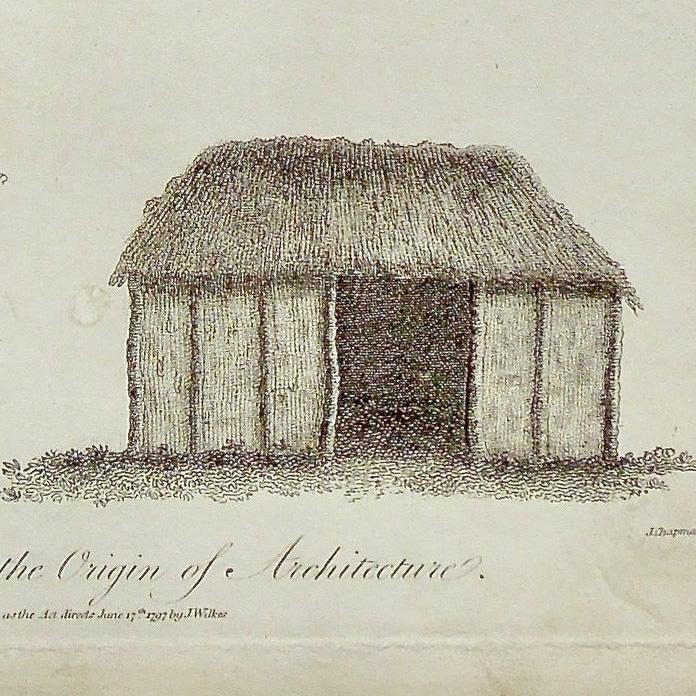 J. Chapma
the Origin of Architecture.
as the Act directs June 17th 1797 by J. Wilkes